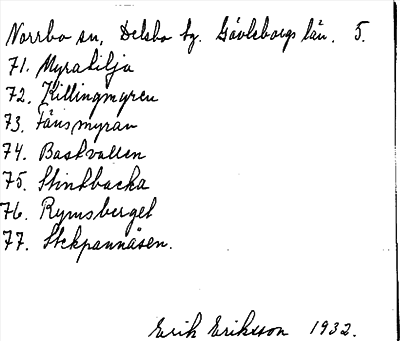 Norrbo sn, Delsbo tg. Gävleborgs län. 5.
71. Myralilja
72. Killingmyren
73. Fänsmyran
74. Baskvallen
75. Stinkbacka
76. Rymsberget
77. Stekpannåsen.
Erik Eriksson 1932.